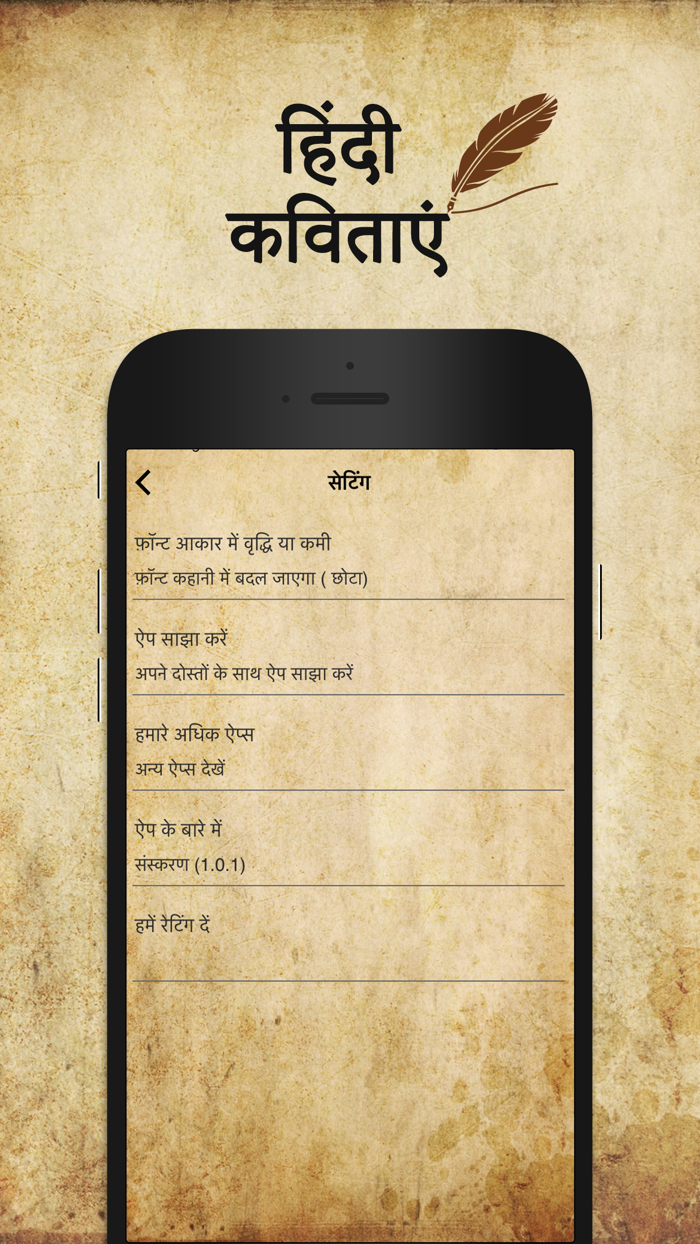 हिंदी
कविताएं
सेटिंग
फ़ॉन्ट आकार में वृद्धि या कमी
फ़ॉन्ट कहानी में बदल जाएगा ( छोटा)
ऐप साझा करें
अपने दोस्तों के साथ ऐप साझा करें
हमारे अधिक ऐप्स
अन्य ऐप्स देखें
ऐप के बारे में
संस्करण (1.0.1)
हमें रेटिंग दें